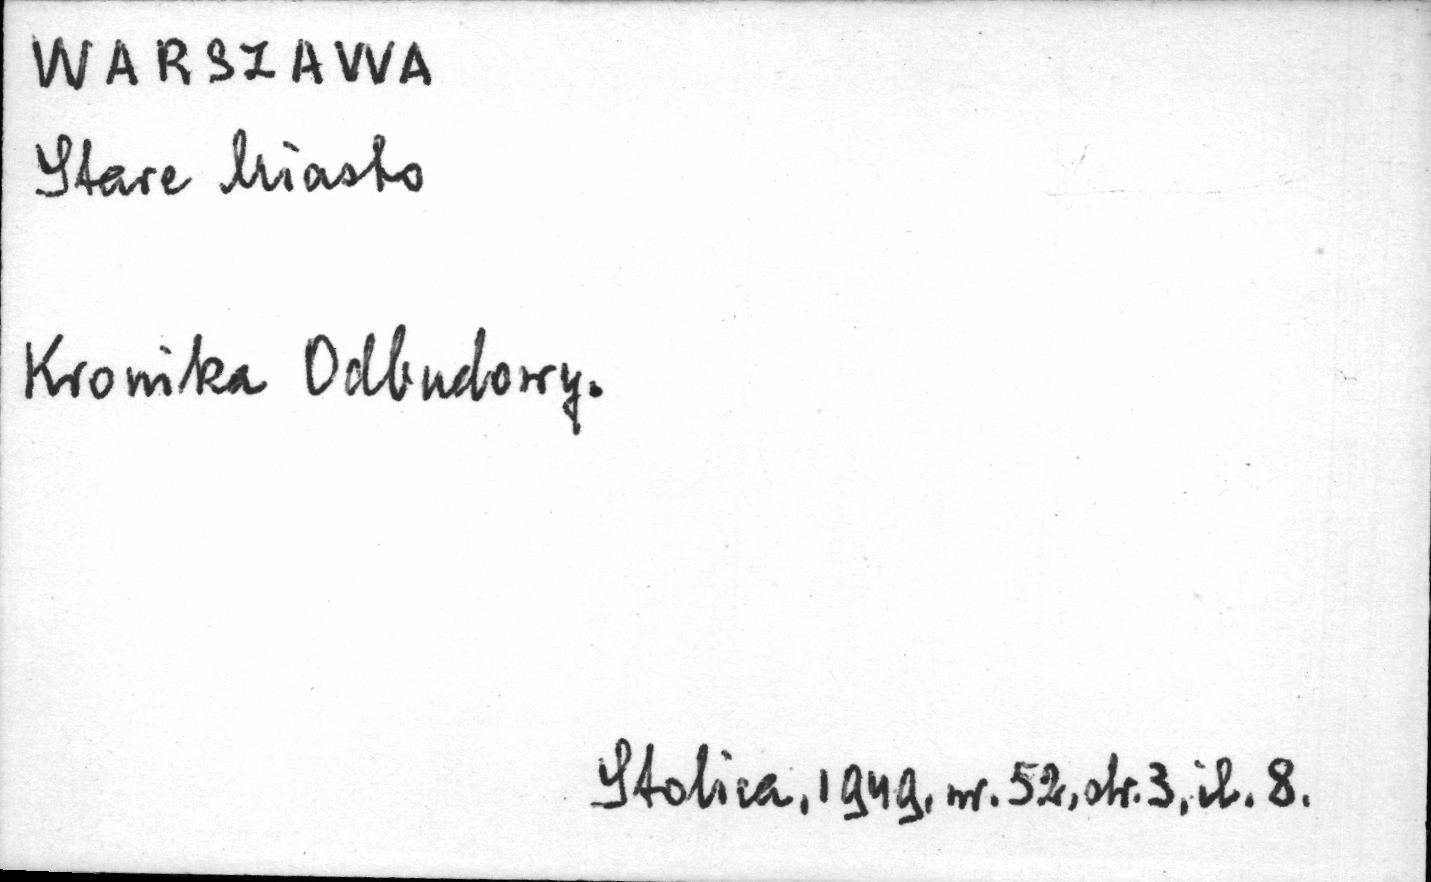 WARSZAWA
Stare Miasto
Kronika Odbudowy.
Stolica, 1949, nr. 52, str. 3, il. 8.